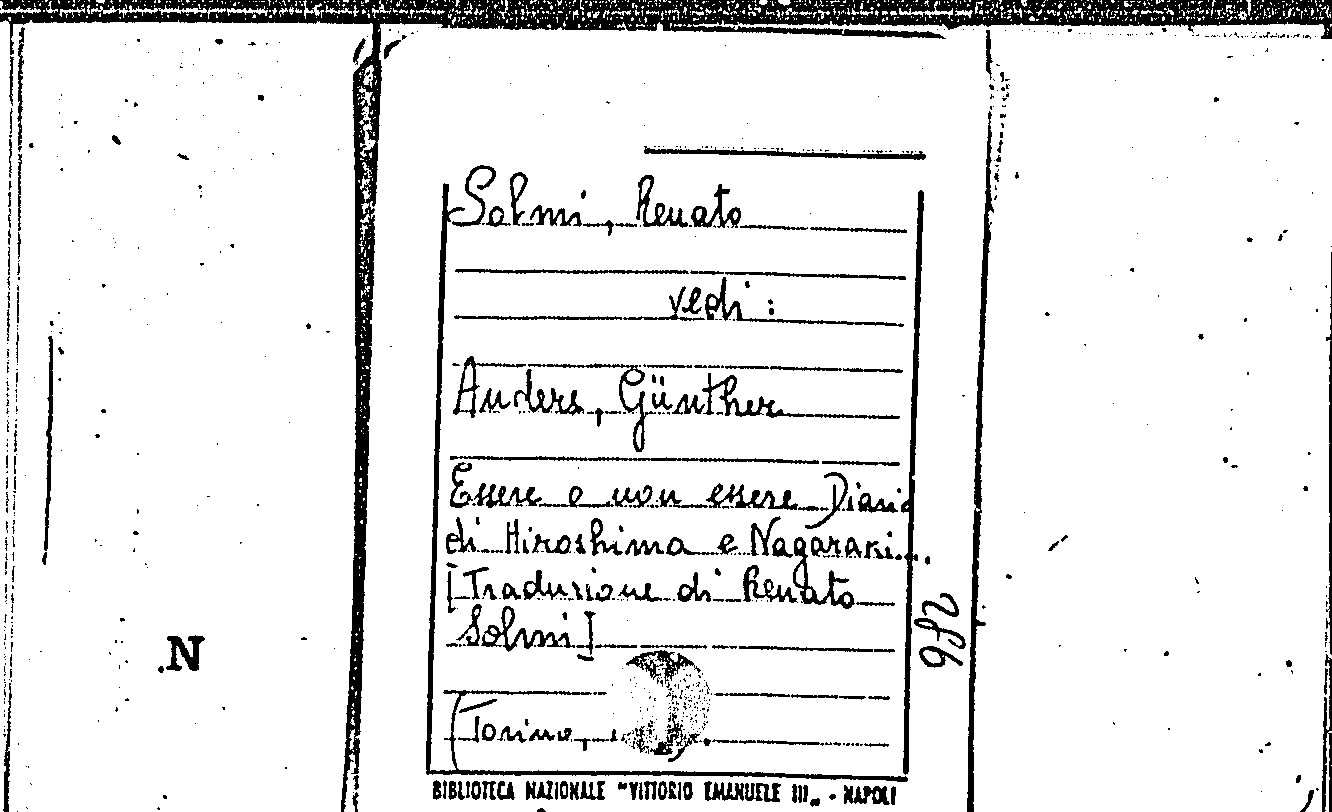 Solmi, Renato
vedi :
Anders, Günther
Essere o non essere Diario
di Hiroshima e Nagasaki...
[Traduzione di Renato
Solmi]
(Torino,
986
.N
BIBLIOTECA NAZIONALE "VITTORIO EMANUELE III„ - NAPOLI